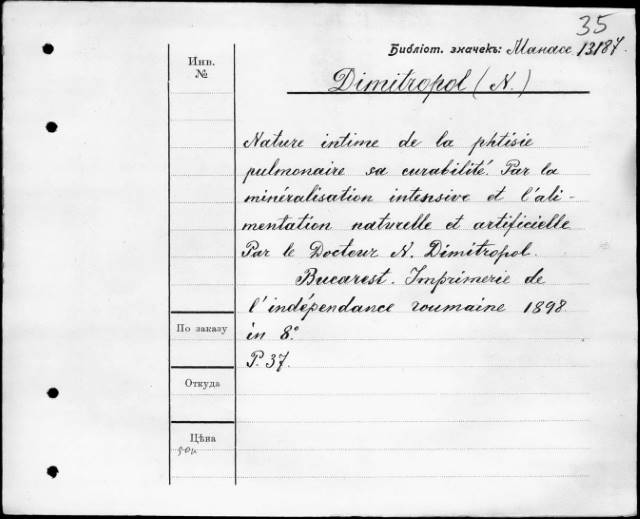 35
Библіот. значекъ: Манасе 13187.
Инв.
№
Dimitropol (N.)
Nature intime de la phtisie
pulmonaire sa curabilité. Par la
minéralisation intensive et l'ali-
mentation naturelle et artificielle
Par le Docteur N. Dimitropol.
Bucarest. Imprimerie de
l'indépendance roumaine 1898
По заказу
in 8.º
P. 37.
Откуда
Цѣна